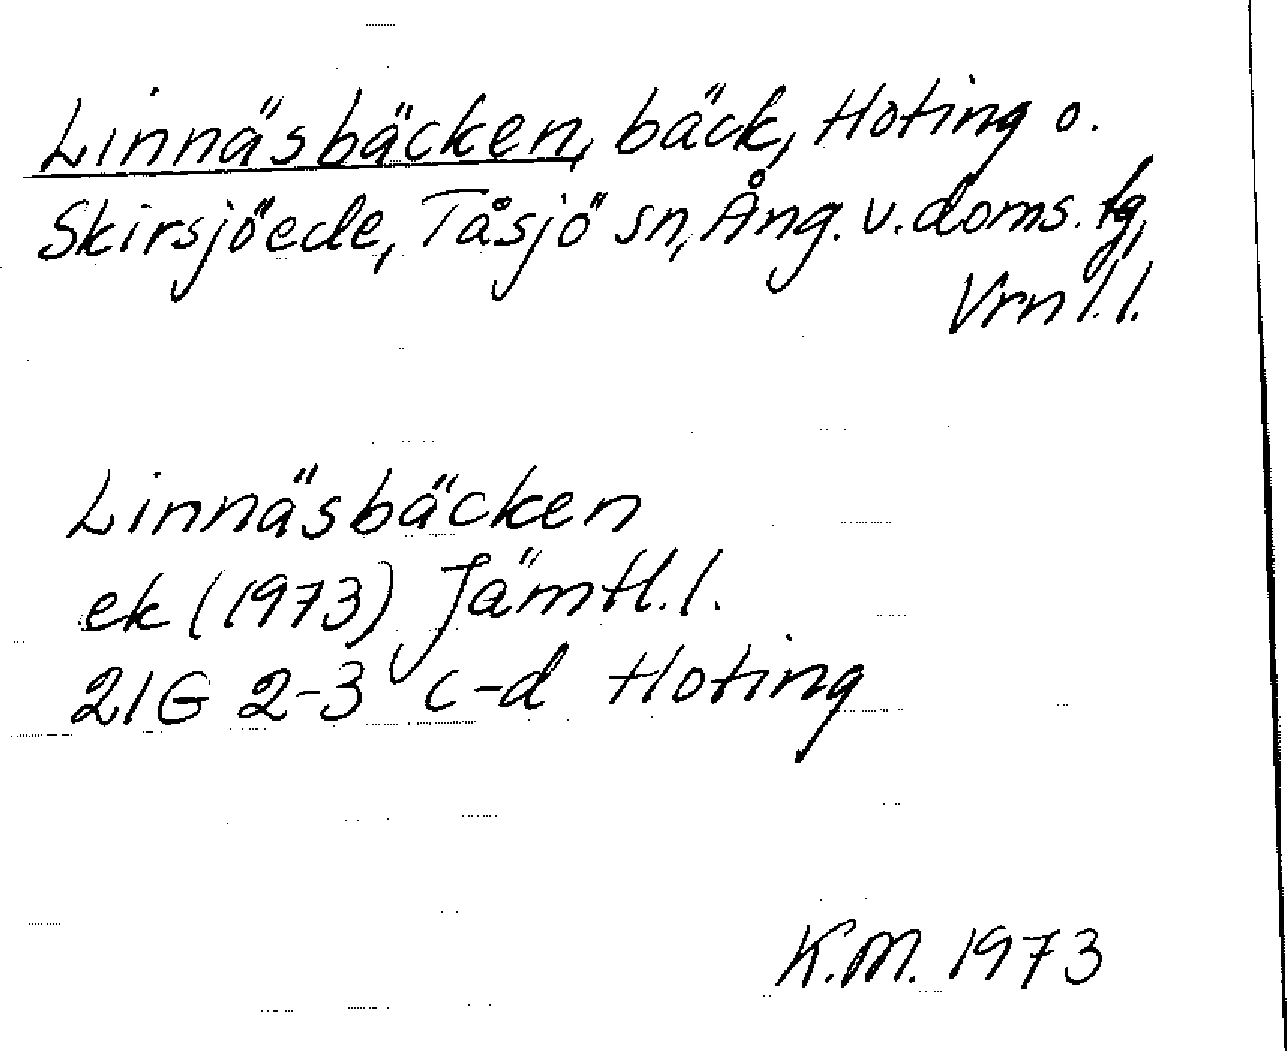 Linnäsbäcken, bäck, Hoting o.
Skirsjöede, Tåsjö sn, Ång. v. doms. fg,
Vrn l.l.
Linnäsbäcken
ek (1973) Jämtl. l.
21G 2-3 c-d Hoting
K.M. 1973